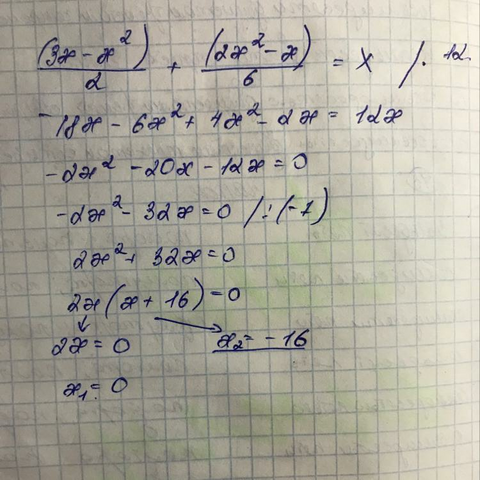 (3x - x²)/2 + (2x² - x)/6 = x /· 12
-18x - 6x² + 4x² - 2x = 12x
-2x² - 20x - 12x = 0
-2x² - 32x = 0 /:(-1)
2x² + 32x = 0
2x(x + 16) = 0
2x = 0 x₂ = -16
x₁ = 0